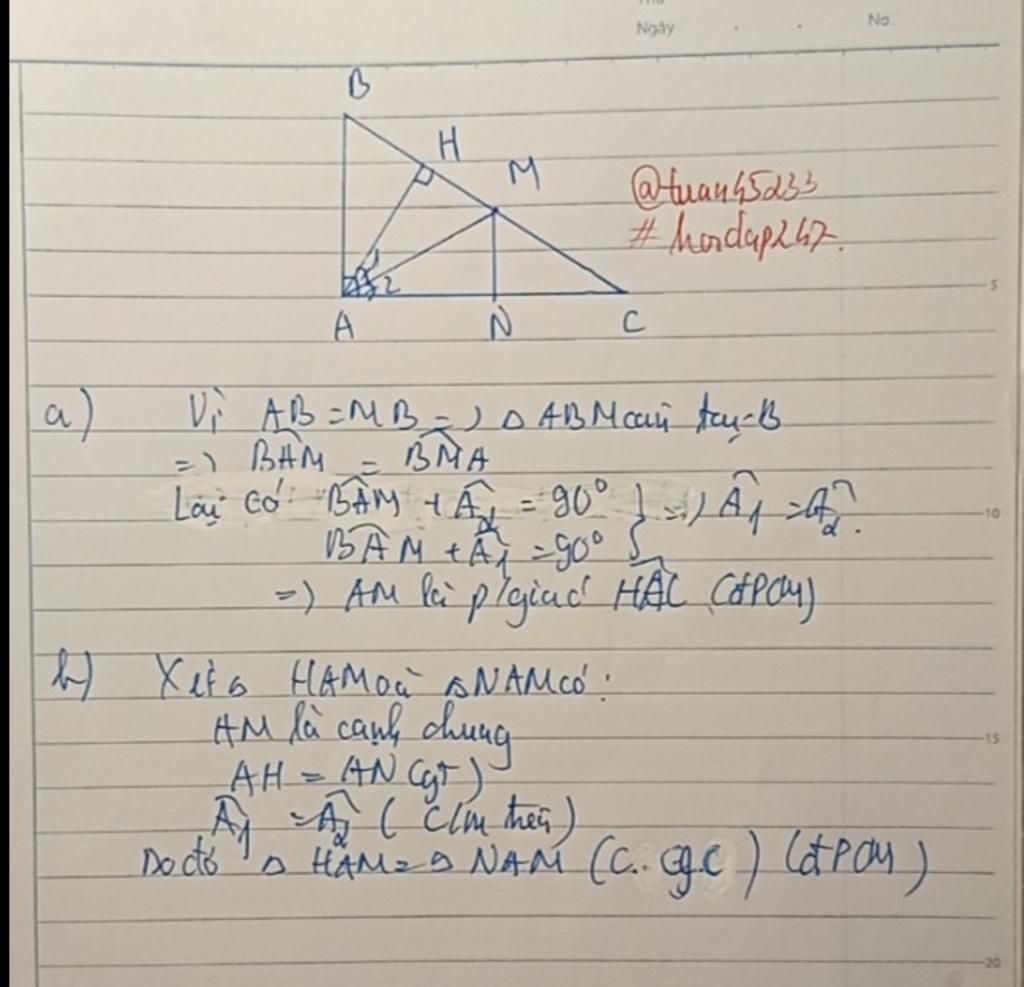 Ngày No.
B
H
M
@tuan45233
#hoidap247.
1
2
5
A N C
a) Vì AB = MB => △ ABM cân tại B
=> BAM = BMA
Lại có BAM + A2 = 90° } => A1 = A2.
10
BAM + A1 = 90°
=> AM là p/giác HAC (đPCM)
b) Xét △ HAM và △NAM có:
AM là cạnh chung
15
AH = AN (gt)
A1 = A2 ( C/m trên)
Do đó △ HAM = △ NAM (C. g.C) (đPCM)
20